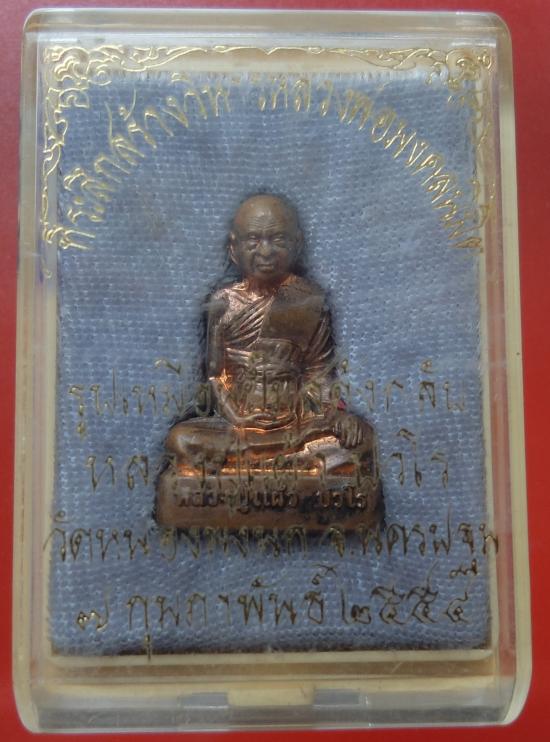 ที่ระลึกสร้างวิหารหลวงพ่อมงคลนิมิต
รูปเหมือน
หลวงปู่แผ้ว ปวโร
หลวงปู่แผ้ว ปวโร
วัดหนองพงนก จ.นครปฐม
๗ กุมภาพันธ์ ๒๕๕๔